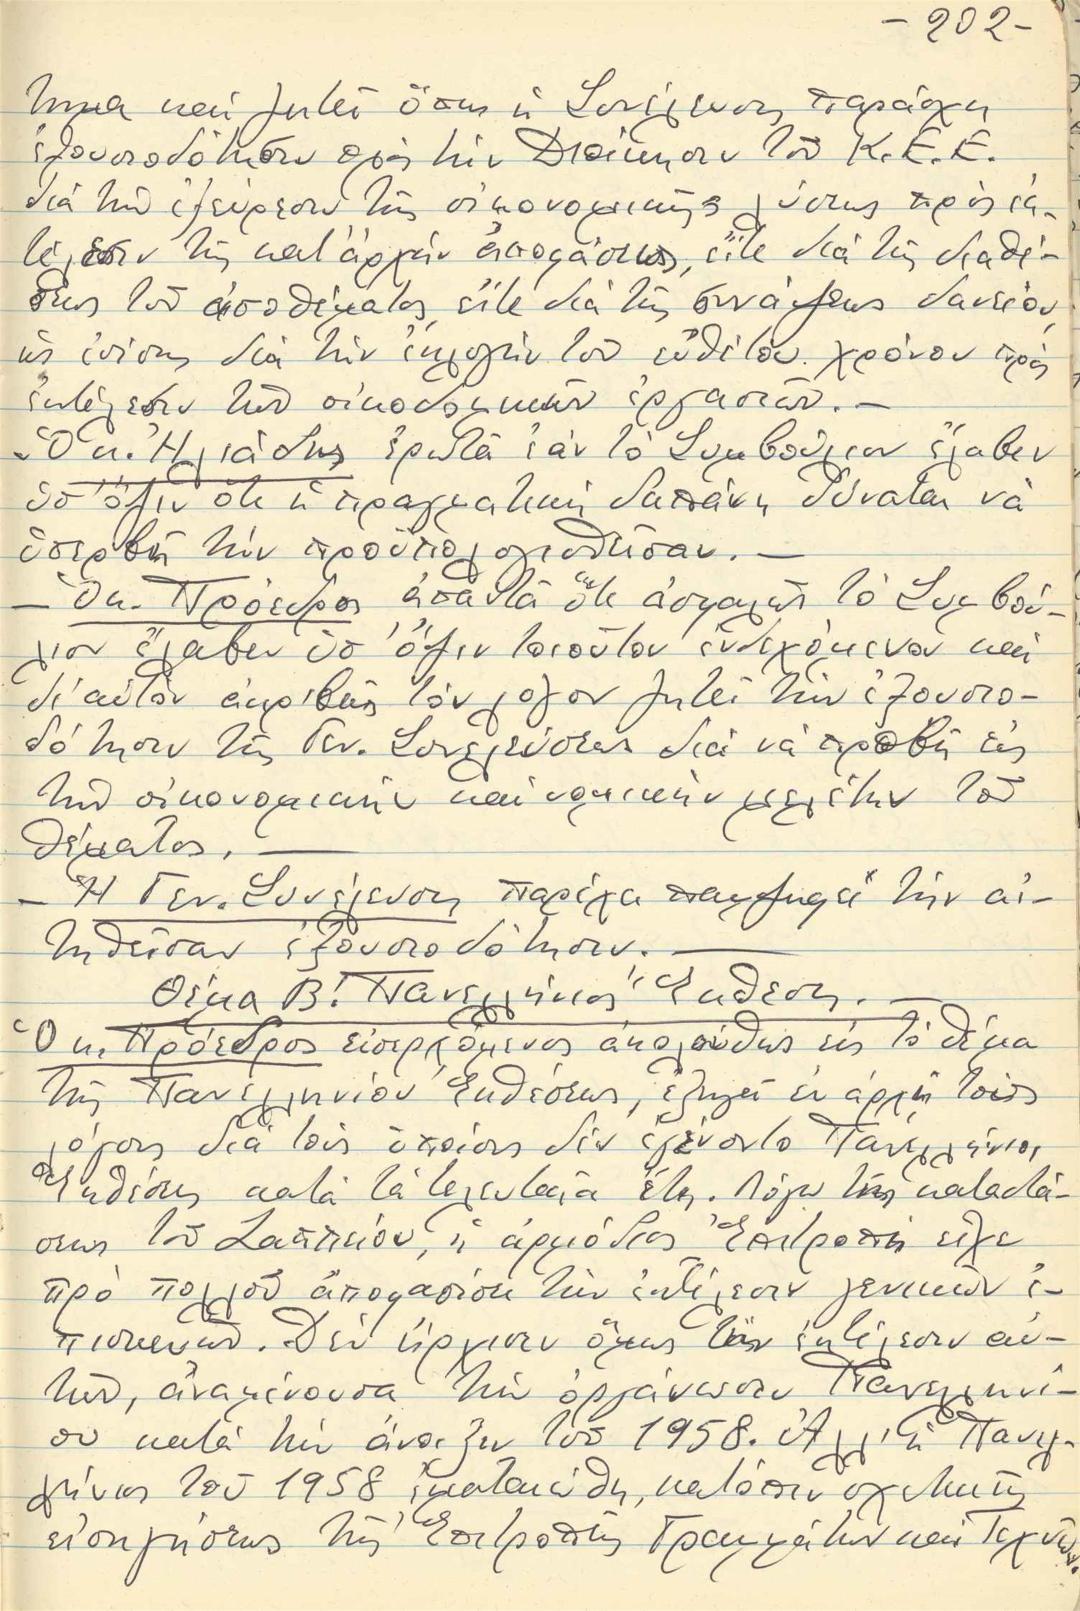 -202-
τημα καὶ ζητεῖ ὅπως ἡ Συνέλευσις παράσχῃ
ἐξουσιοδότησιν πρὸς τὴν Διοίκησιν τοῦ Κ.Ε.Ε.
διὰ τὴν ἐξεύρεσιν τῆς οἰκονομικῆς λύσεως πρὸς ἐκ-
τέλεσιν τῆς κατ' ἀρχὴν ἀποφάσεως, εἴτε διὰ τῆς διαθέ-
σεως τοῦ ἀποθέματος, εἴτε διὰ τῆς συνάψεως δανείου,
ὡς ἐπίσης διὰ τὴν ἐκλογὴν τοῦ εὐθέτου χρόνου πρὸς
ἐκτέλεσιν τῶν οἰκοδομικῶν ἐργασιῶν.—
- Ὁ κ. Ἠλιάδης ἐρωτᾶ ἐὰν τὸ Συμβούλιον ἔλαβεν
ὑπ' ὄψιν ὅτι ἡ πραγματικὴ δαπάνη δύναται νὰ
ὑπερβῇ τὴν προϋπολογισθεῖσαν.—
- Ὁ κ. Πρόεδρος ἀπαντᾶ ὅτι ἀσφαλῶς τὸ Συμβού-
λιον ἔλαβεν ὑπ' ὄψιν τοιοῦτον ἐνδεχόμενον καὶ
δι' αὐτὸν ἀκριβῶς τὸν λόγον ζητεῖ τὴν ἐξουσιο-
δότησιν τῆς Γεν. Συνελεύσεως διὰ νὰ προβῇ εἰς
τὴν οἰκονομικὴν καὶ νομικὴν μελέτην τοῦ
θέματος.—
- Ἡ Γεν. Συνέλευσις παρέχει παμψηφεὶ τὴν αἰ-
τηθεῖσαν ἐξουσιοδότησιν.—
Θέμα Β! Πανελλήνιος Ἔκθεσις.—
Ὁ κ. Πρόεδρος εἰσερχόμενος ἀκολούθως εἰς τὸ θέμα
τῆς Πανελληνίου Ἐκθέσεως, ἐξηγεῖ ἐν ἀρχῇ τοὺς
λόγους διὰ τοὺς ὁποίους δὲν ἐγένοντο Πανελλήνιοι
Ἐκθέσεις κατὰ τὰ τελευταῖα ἔτη. Λόγω τῆς καταστά-
σεως τοῦ Ζαππείου, ἡ ἁρμόδιος Ἐπιτροπὴ εἶχε
πρὸ πολλοῦ ἀποφασίσει τὴν ἐκτέλεσιν γενικῶν ἐ-
πισκευῶν. Δὲν ἤρχισεν ὅμως τὴν ἐκτέλεσιν αὐ-
τῶν, ἀναμένουσα τὴν ὀργάνωσιν Πανελληνί-
ου κατὰ τὴν ἄνοιξιν τοῦ 1958. Ἀλλ' ἡ Πανελ-
λήνιος τοῦ 1958 ἐματαιώθη, κατόπιν σχετικῆς
εἰσηγήσεως τῆς Ἐπιτροπῆς Γραμμάτων καὶ Τεχνῶν.